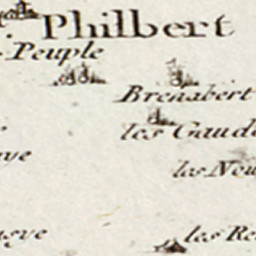 Philbert
Peuple
Brenabert
les Gaud
les Neu
les Re